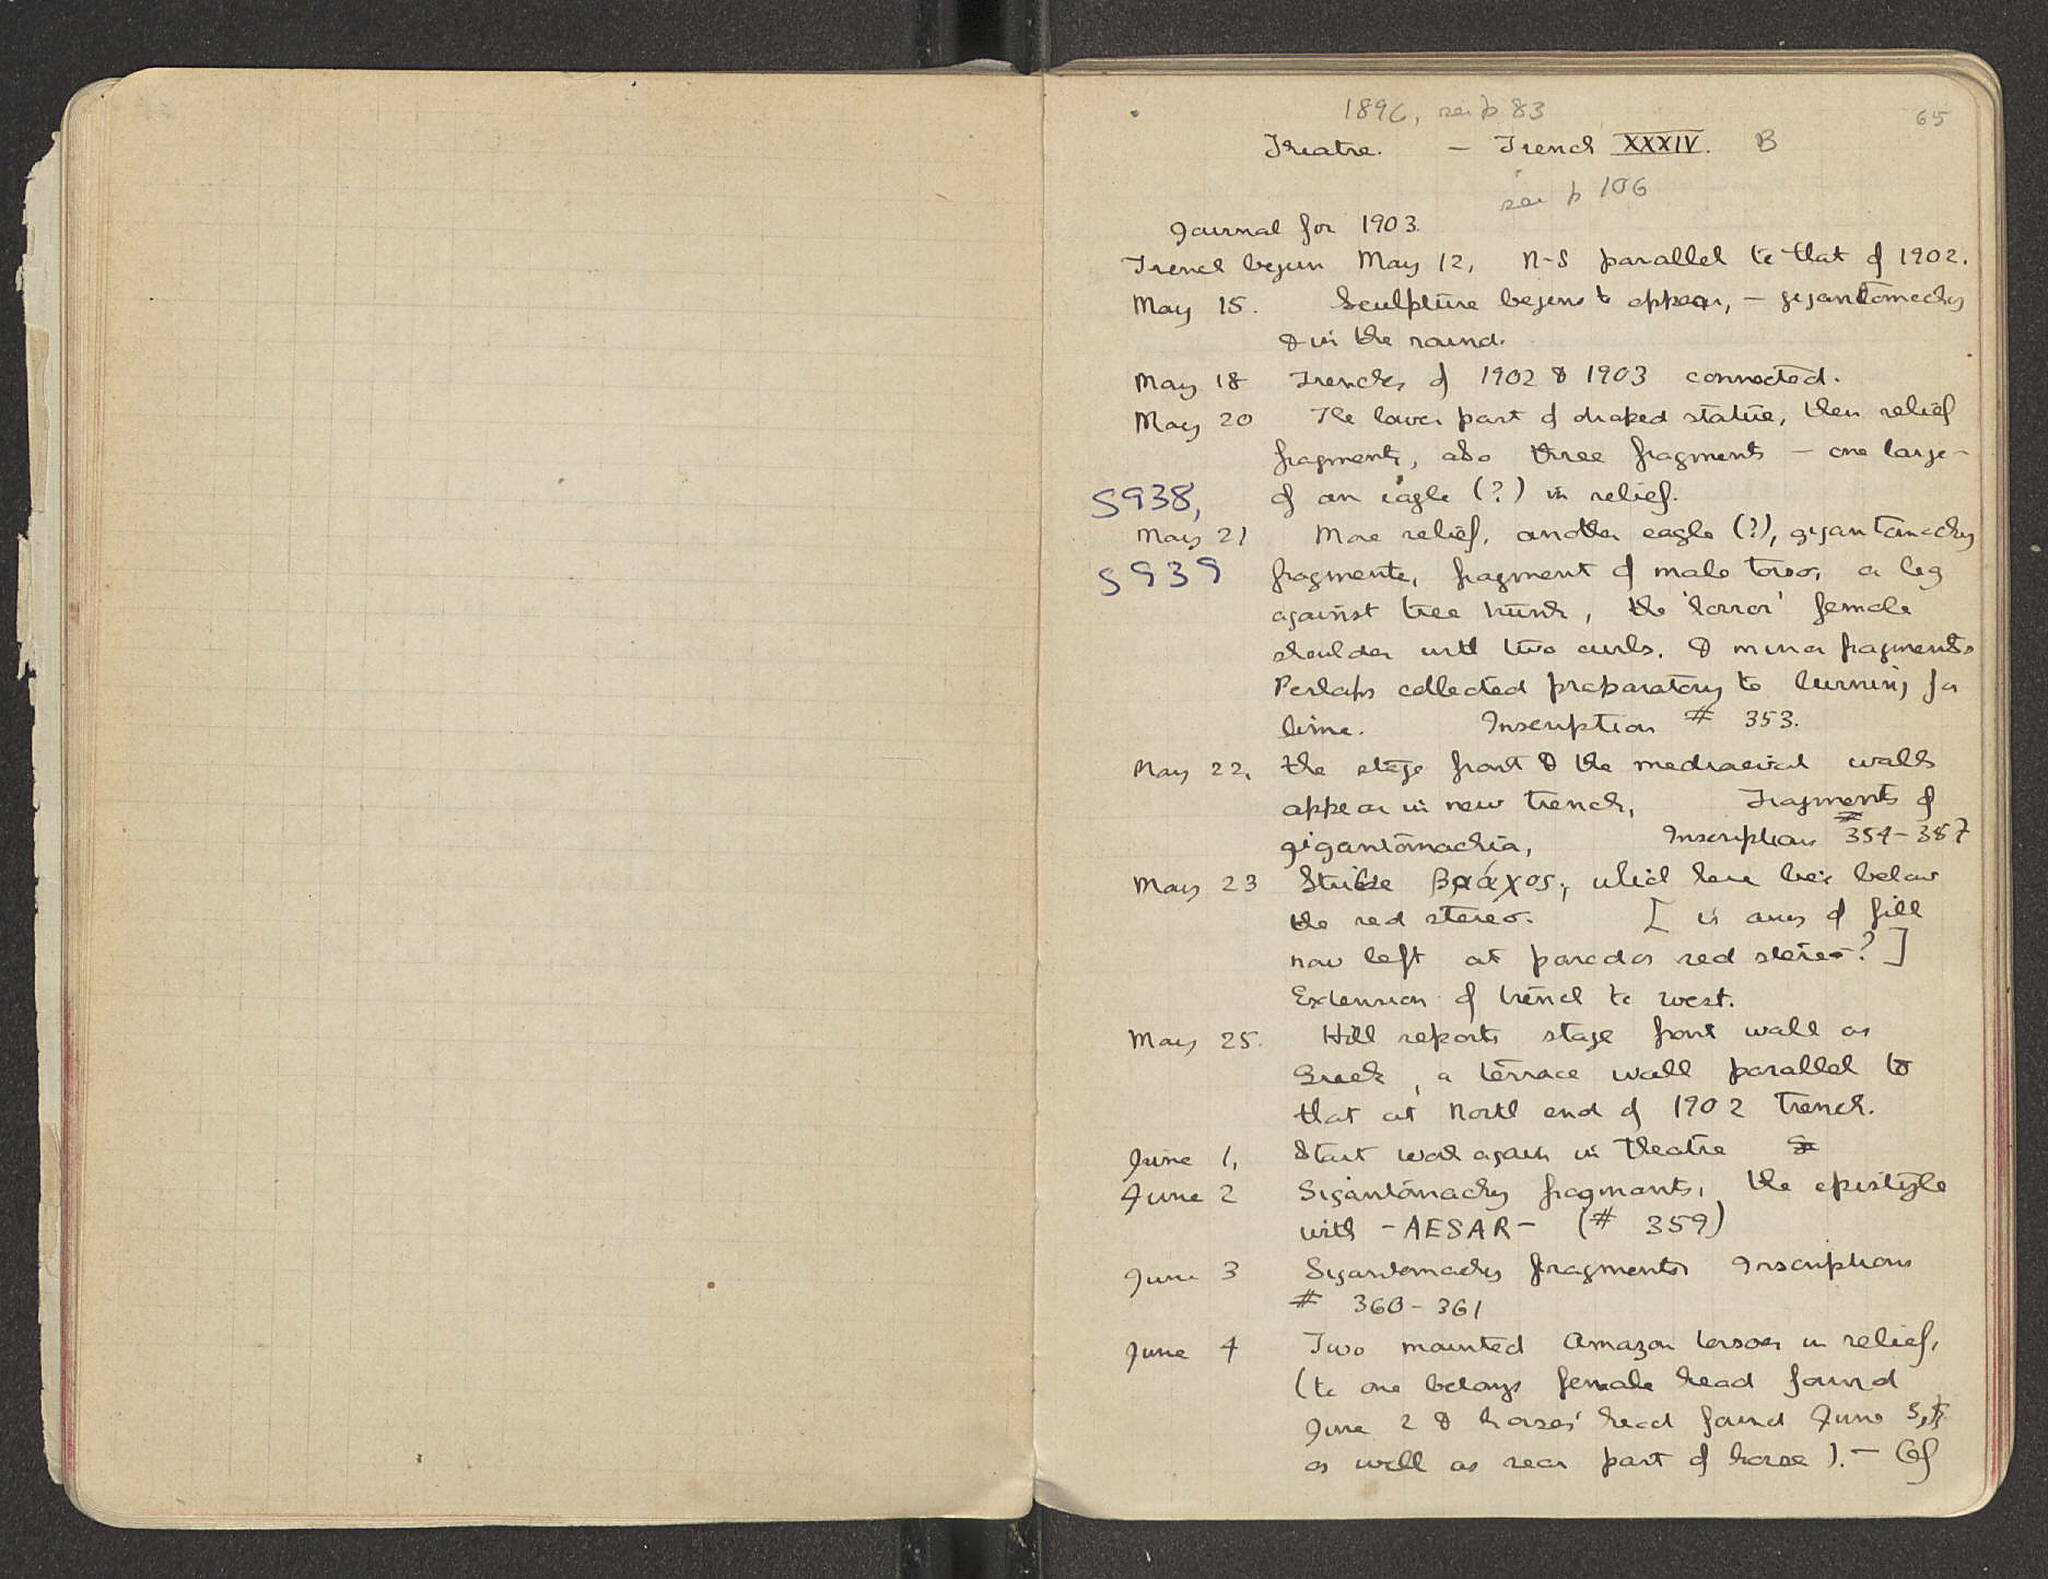 1896, see p 83
65
Theatre. — Trench XXXIV. B
see p 106
Journal for 1903.
Trench begun May 12, N-S parallel to that of 1902.
May 15. Sculpture begins to appear, — gigantomachy
& in the round.
May 18 Trenches of 1902 & 1903 connected.
May 20 The lower part of draped statue, then relief
fragments, also three fragments — one large —
S938, of an eagle (?) in relief.
May 21 More relief, another eagle (?), gigantomachy
S939 fragments, fragment of male torso, a leg
against tree trunk, the 'horror' female
shoulder with two curls, & minor fragments
Perhaps collected preparatory to burning for
lime. Inscription # 353.
May 22, the stage front & the mediaeval walls
appear in new trench, Fragments of
gigantomachia, Inscriptions # 354-357
May 23 Strike βράχος, which here lies below
the red stereo. [ is any of fill
now left at parodos red stereo? ]
Extension of trench to west.
May 25. Hill reports stage front wall as
Greek, a terrace wall parallel to
that at North end of 1902 trench.
June 1, Start work again in Theatre
June 2 Gigantomachy fragments, the epistyle
with -AESAR- (# 359)
June 3 Gigantomachy fragments Inscriptions
# 360-361
June 4 Two mounted Amazon torsoes in relief,
(to one belongs female head found
June 2 & horses' head found June 3,
as well as rear part of horse). — (Of